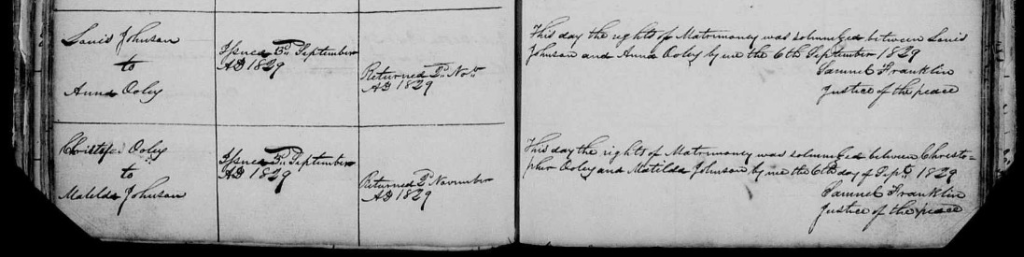 Louis Johnson
to
Anna Ooley
Issued 5th September
AD 1829
Returned 2d Novr
AD 1829
This day the rights of Matrimoney was solmnezed between Louis
Johnson and Anna Ooley by me the 6th September 1829
Samuel Franklin
Justice of the peace
Christofer Ooley
to
Matilda Johnson
Issued 5th September
AD 1829
Returned 2d November
AD 1829
This day the rights of Matrimoney was solmnezed between Christo=
pher Ooley and Matilda Johnson by me the 6th day of Sept 1829
Samuel Franklin
Justice of the peace